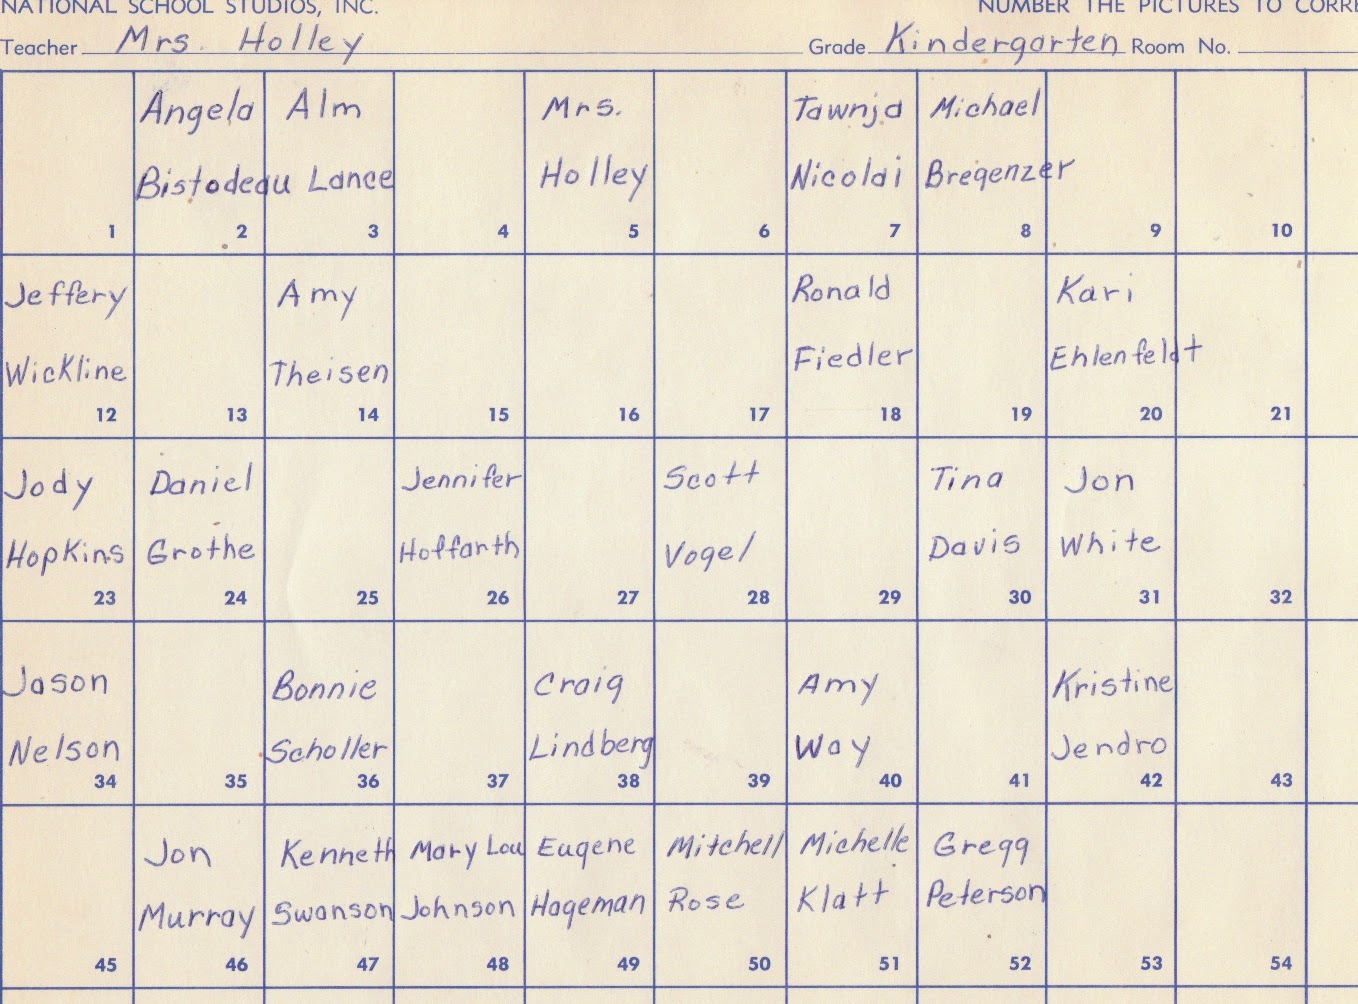 NATIONAL SCHOOL STUDIOS, INC. NUMBER THE PICTURES TO CORRE
Teacher Mrs. Holley Grade Kindergarten Room No.
Angela Alm Mrs. Tawnja Michael
Bistodeau Lance Holley Nicolai Bregenzer
1 2 3 4 5 6 7 8 9 10
Jeffery Amy Ronald Kari
Wickline Theisen Fiedler Ehlenfeldt
12 13 14 15 16 17 18 19 20 21
Jody Daniel Jennifer Scott Tina Jon
Hopkins Grothe Hoffarth Vogel Davis White
23 24 25 26 27 28 29 30 31 32
Jason Bonnie Craig Amy Kristine
Nelson Scholler Lindberg Way Jendro
34 35 36 37 38 39 40 41 42 43
Jon Kenneth Mary Lou Eugene Mitchell Michelle Gregg
Murray Swanson Johnson Hageman Rose Klatt Peterson
45 46 47 48 49 50 51 52 53 54